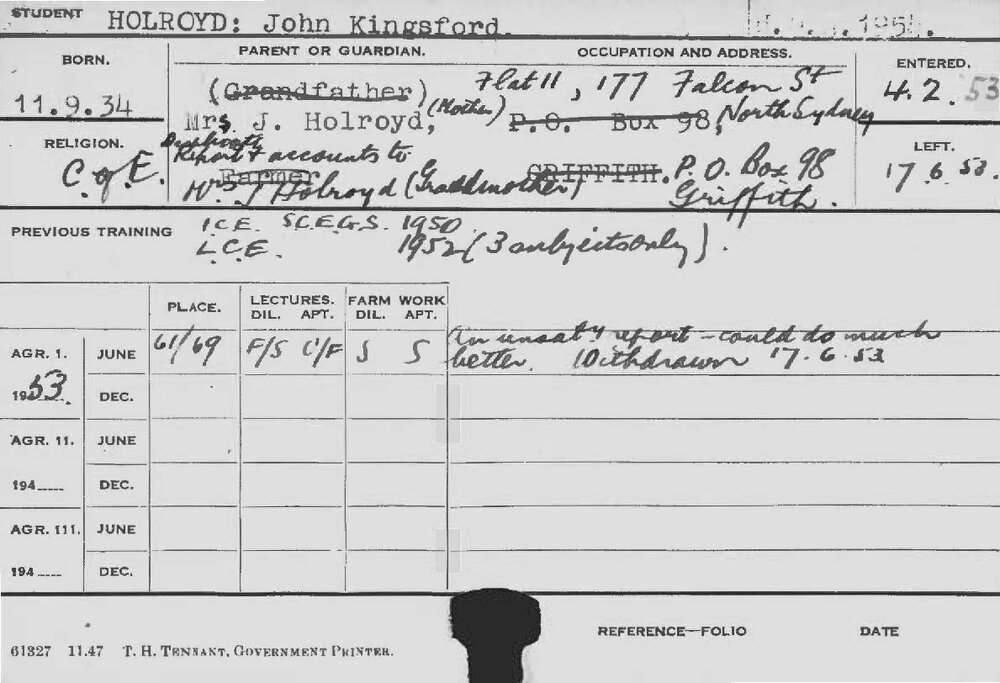 STUDENT HOLROYD: John Kingsford. 195
BORN. PARENT OR GUARDIAN. OCCUPATION AND ADDRESS. ENTERED.
11.9.34 (Grandfather) Flat 11, 177 Falcon St 4.2.53
Mrs J. Holroyd, (Mother) P.O. Box 98, North Sydney
RELIGION. LEFT.
C of E. Report & accounts to 17.6.53.
Farmer GRIFFITH. P.O. Box 98
Mrs J Holroyd (Grandmother) Griffith.
PREVIOUS TRAINING I.C.E. S.C.E.G.S. 1950
L.C.E. 1952 (3 subjects only).
PLACE. LECTURES. FARM WORK
DIL. APT. DIL. APT.
AGR. 1. JUNE 61/69 F/S C/F S S An unsaty report - could do much
better. Withdrawn 17.6.53
1953. DEC.
AGR. 11. JUNE
194 DEC.
AGR. 111. JUNE
194 DEC.
REFERENCE—FOLIO DATE
61327 11.47 T. H. TENNANT, GOVERNMENT PRINTER.